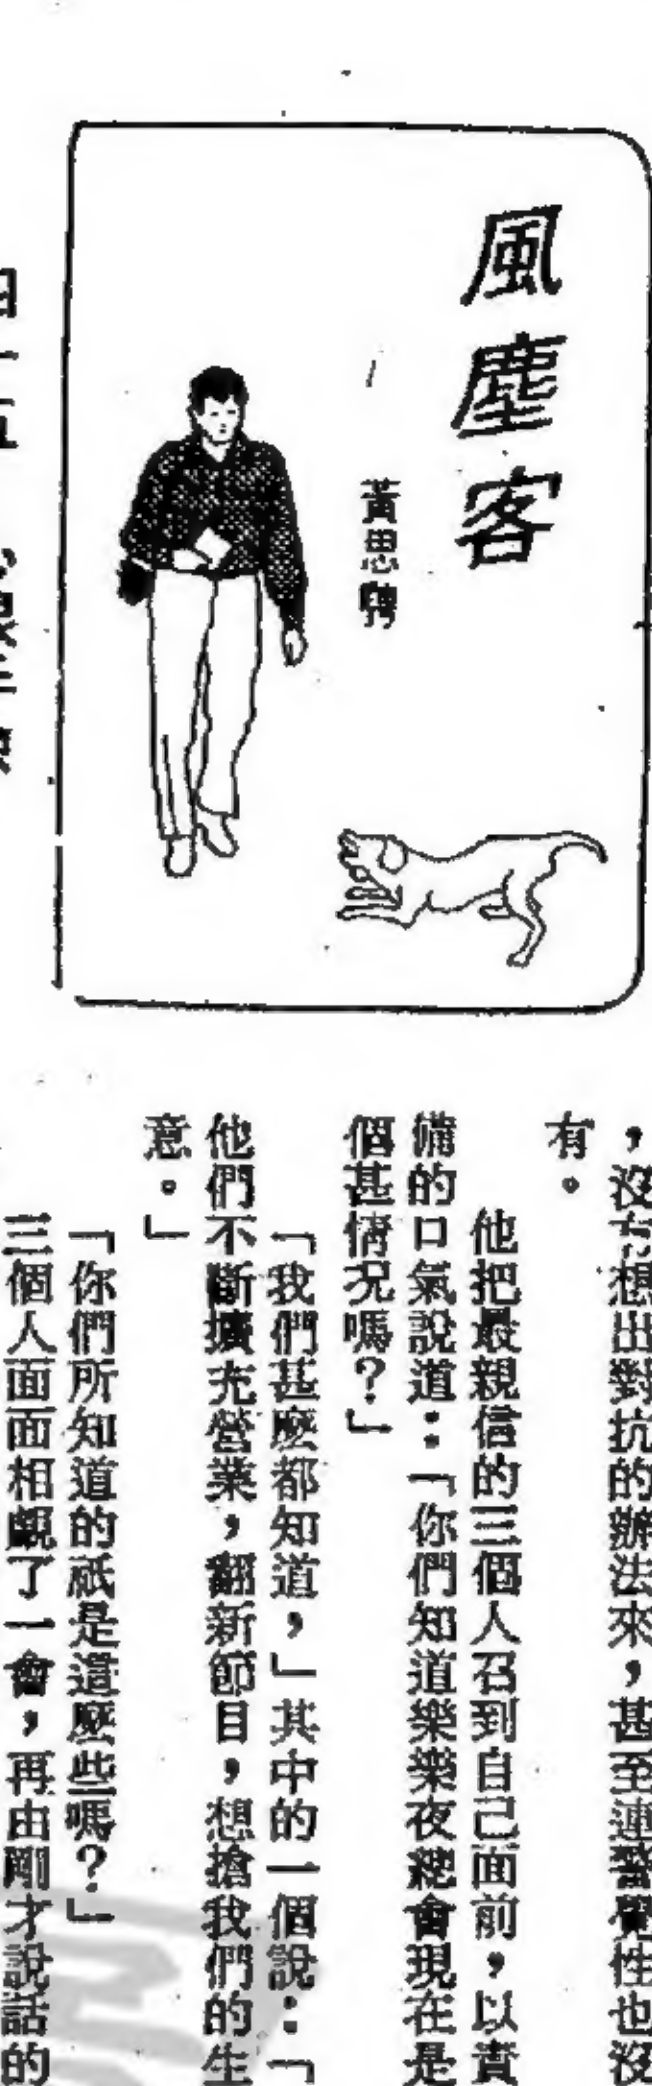 風塵客
黃思騁
，沒有想出對抗的辦法來，甚至連警覺性也沒
有。
他把最親信的三個人召到自己面前，以責
備的口氣說道：「你們知道樂樂夜總會現在是
個甚情況嗎？」
「我們甚麼都知道，」其中的一個說：「
他們不斷擴充營業，翻新節目，想搶我們的生
意。」
「你們所知道的祇是這麼些嗎？」
三個人面面相覷了一會，再由剛才說話的